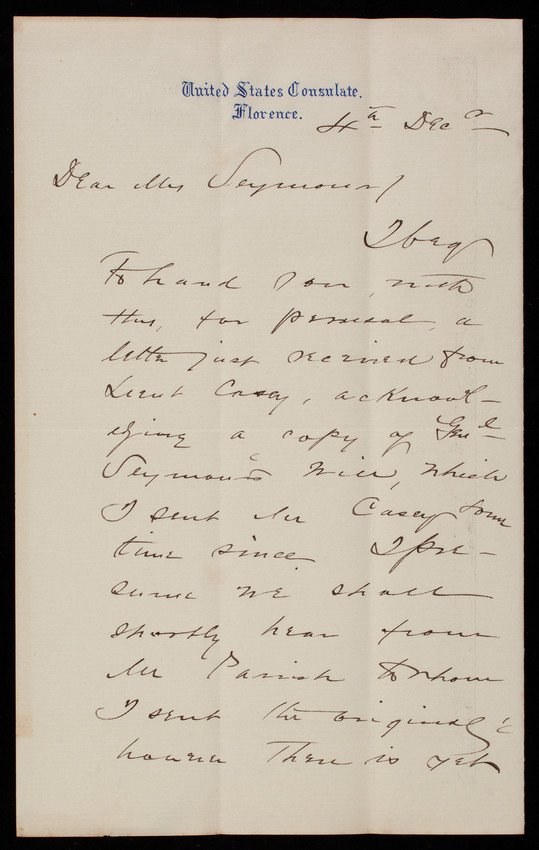 United States Consulate.
Florence.
4th Decr
Dear Mrs Seymour/
I beg
to hand you, with
this, for perusal, a
letter just received from
Lieut Casey, acknowl-
edging a copy of Genl
Seymour's Will, which
I sent Mr Casey some
time since. I pre-
sume we shall
shortly hear from
Mr Parish to whom
I sent the original,
however there is yet